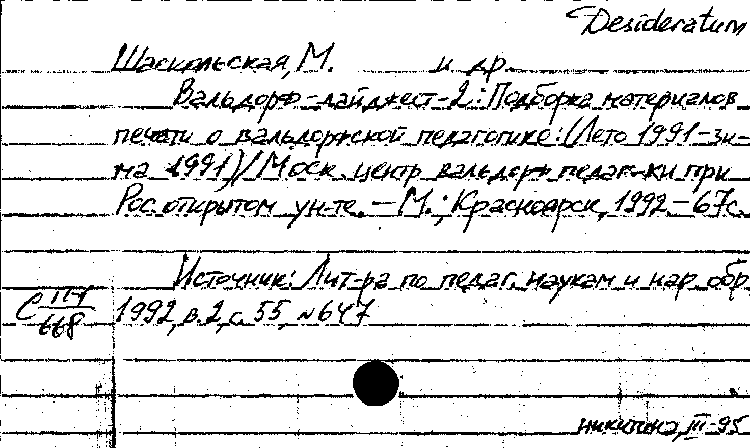 Desideratum
Шаскольская, М. и др.
Вальдорф-дайджест-2: Подборка материалов
печати о вальдорфской педагогике: (Лето 1991-зи-
ма 1991)/Моск. центр вальдорф педаг-ки при
Рос. открытом ун-те. – М.; Красноярск, 1992. – 67с.
Источник: Лит-ра по педаг. наукам и нар. обр.
1992, в. 2, с. 55, №647
668
III-95